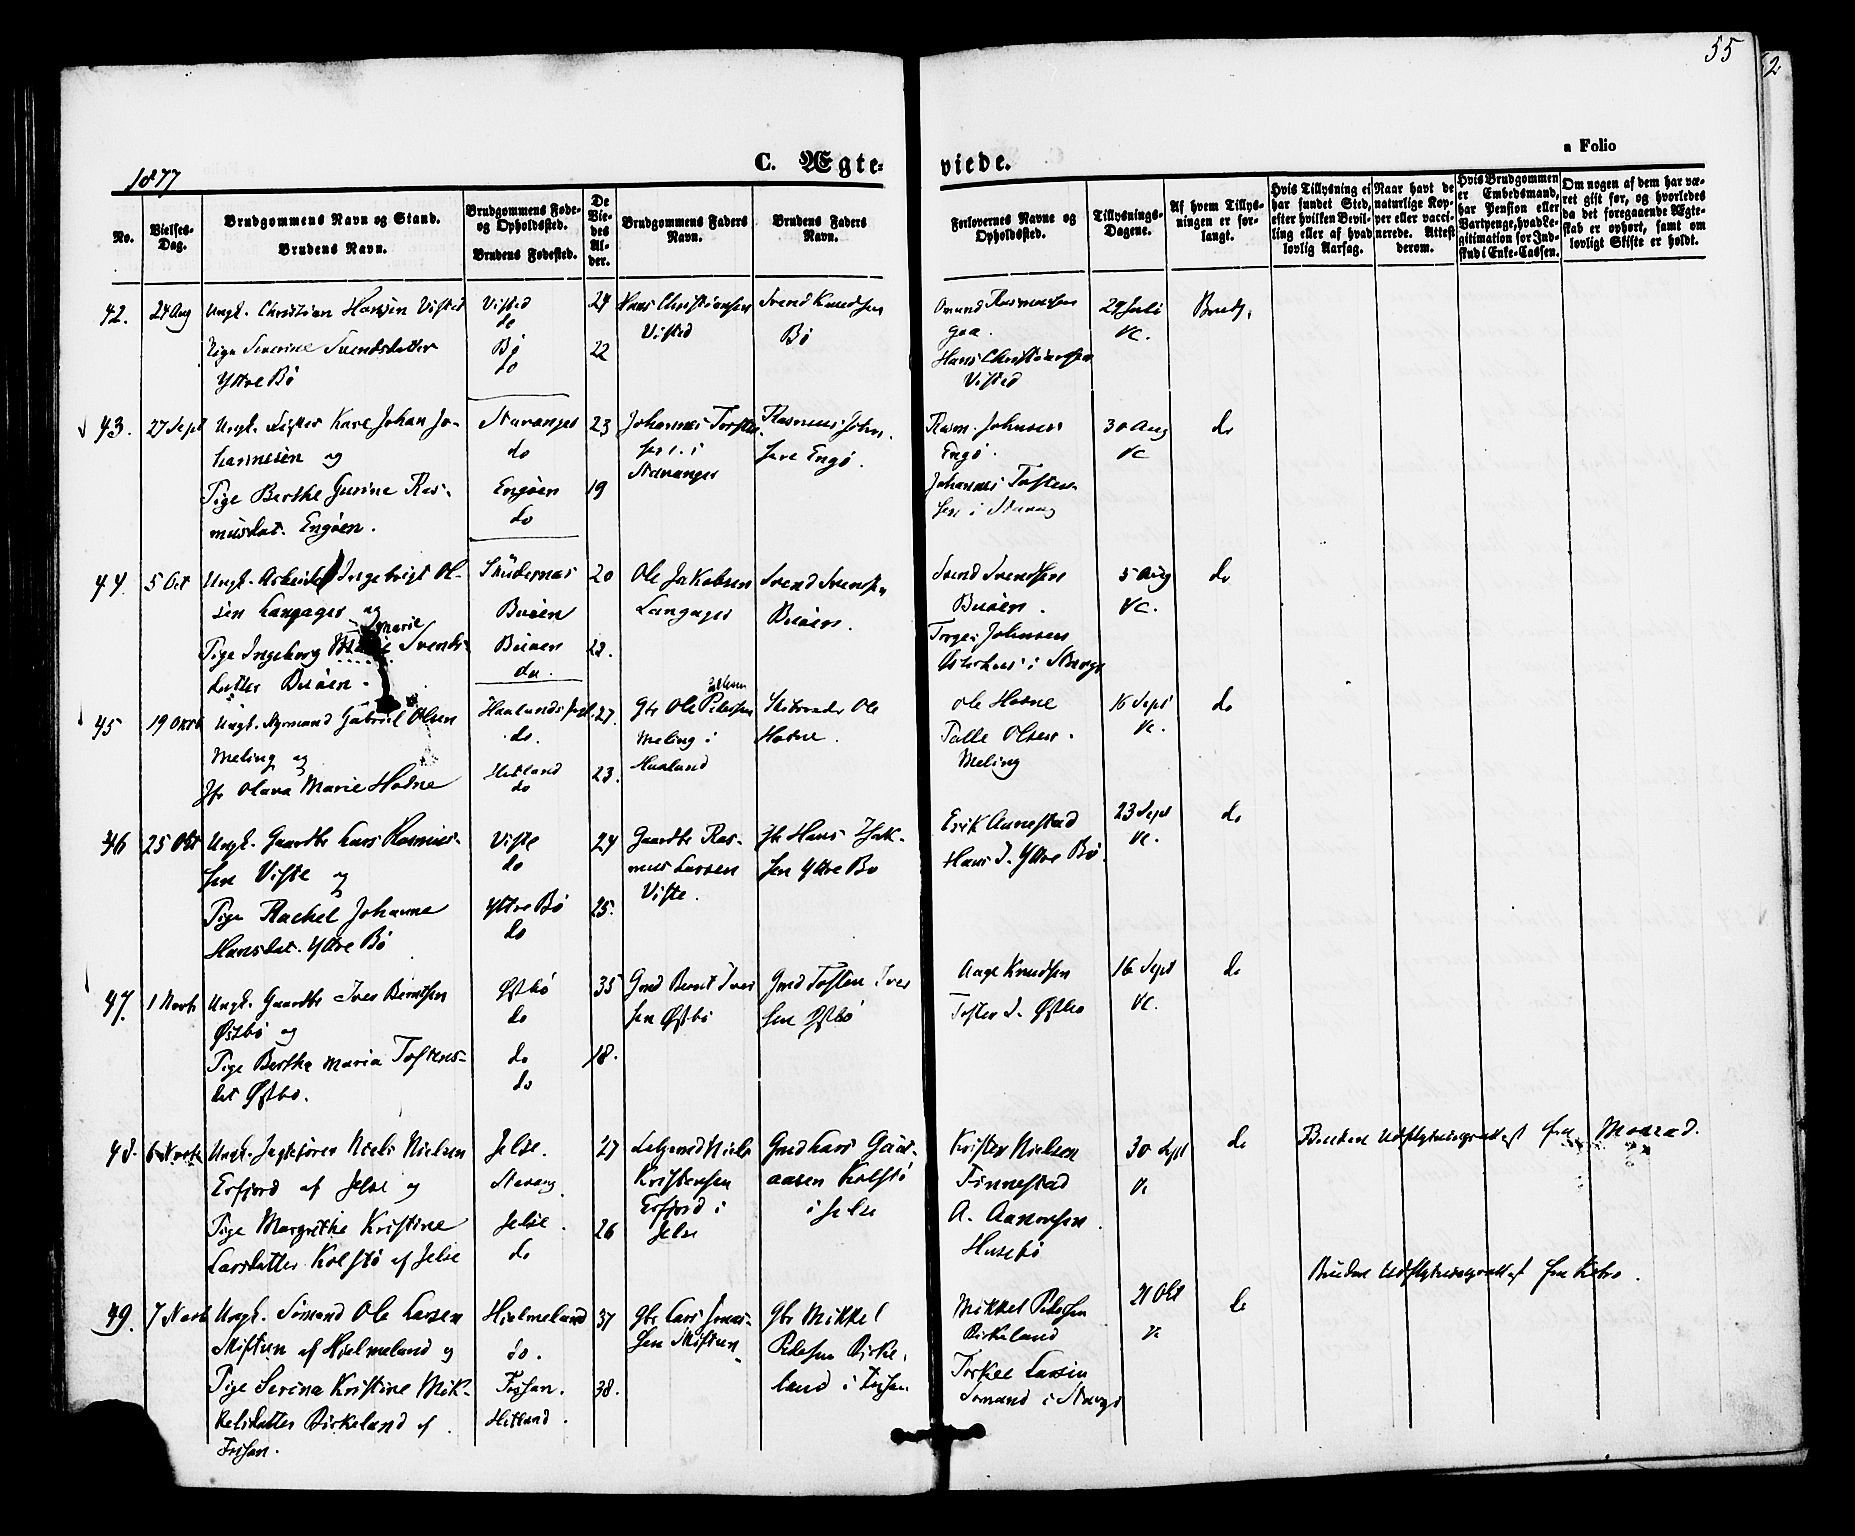 55
2
1877
C. Ægte-
viede.
a Folio
No.
Vielses-
Dag.
Brudgommens Navn og Stand.
Brudens Navn.
Brudgommens Føde-
og Opholdssted.
Brudens Fødested.
De
Vie-
des
Al-
der.
Brudgommens Faders
Navn.
Brudens Faders
Navn.
Forlovernes Navne og
Opholdssted.
Tillysnings-
Dagene.
Af hvem Tillys-
ningen er for-
langt.
Hvis Tillysning ei
har fundet Sted,
efter hvilken Bevil-
ling eller af hvad
lovlig Aarsag.
Naar havt de
naturlige Kop-
per eller vacci-
nerede. Attest
derom.
Hvis Brudgommen
er Embedsmand,
har Pension eller
Vartpenge, hvad Le-
gitimation for Ind-
skud i Enke-Cassen.
Om nogen af dem har væ-
ret gift før, og hvorledes
da det foregaaende Ægte-
skab er ophørt, samt om
lovligt Skifte er holdt.
42.
24 Aug
Ungk. Christian Hansen Visted
Pige Severine Svendsdatter
Ytre Bø
Visted
do
Bø
do
24
22
Hans Christiansen
Visted
Svend Knudsen
Bø
Omund Rasmussen
Goa.
Hans Christiansen
Visted
29 Juli
Brudg.
43.
27 Sept
Ungk. Karl Johan Jo-
hannesen og
Pige Berthe Gurine Ras-
musdat. Engøen.
Stavanger
do
Engøen
do
23
19
Johannes Torsten-
sen i
Stavanger
Rasmus John-
sen Engø.
Rasm. Johnsen
Engø.
Johannes Torsten-
sen i Stavang
30 Aug
do
44.
5 Oct
Ungk. Arbeider Ingebrigt Ol-
sen Langager og
Pige Ingeborg Marie Svends-
datter Buøen.
Skudesnæs
Buøen
Buøen
do.
20
22.
Ole Jakobsen
Langager
Svend Svensen
Buøen.
Svend Svendsen
Buøen.
Torger Johnsen
i Stavgr
5 Aug
do
45
19 Oktb
Ungk. Styrmand Gabriel Olsen
Meling og
Jfr Olava Marie Hodne
Haalands Præst.
do.
Hetland
do
27.
23.
Gbr Ole Pedersen
Meling i
Haaland
Skibreder Ole
Hodne.
Ole Hodne
Tolle Olsen
Meling
16 Sept
do
46
25 Okt
Ungk. Gaardbr Lars Rasmus-
sen Viste og
Pige Rachel Johanne
Hansdat. Ytre Bø
Viste
do
Ytre Bø
do
24
25.
Gaardbr Ras-
mus Larsen
Viste.
Gbr Hans Isak-
sen Ytre Bø
Erik Aanestad
Hans I. Ytre Bø.
23 Sept
do
47.
1 Novb
Ungk. Gaardbr Iver Berntsen
Østbø og
Pige Berthe Maria Tostens-
dat Østbø.
Østbø
do
do
do
35
18.
Gmd Bernt Iver
sen Østbø
Gmd Tosten Iver
sen Østbø
Aage Knudsen
Tosten I. Østbø
16 Sept
do
48.
6 Novb
Ungk. Jagtfører Niels Nielsen
Erfjord af Jelse og
Pige Margrethe Kristine
Larsdatter Kolstø af Jelse
Jelse.
Stavang
Jelse.
do
27
26
Niels
Kristensen
Erfjord i
Jelse
Gmd Lars Gud-
Kolstø
i Jelse
Krister Nielsen
Finnestad
A. Aanensen
Husebø
30 Sept
do
Bruden Udflytningsattest fra
49.
7 Novb
Ungk. Sømand Ole Larsen
Mistun af Hjelmeland og
Pige Serina Kristine Mik-
kelsdatter Birkeland af
Fossan.
Hjelmeland
do.
Fossan.
Hetland.
37
38.
Gbr Lars Jonas-
sen Mistun
Gbr Mikkel
Pedersen Birke-
land i Fossan
Mikkel Pedersen
Birkeland
Torkel Larsen
Sømand i Stavgr
21 Okt
do
Bruden Udflytningsattest fra